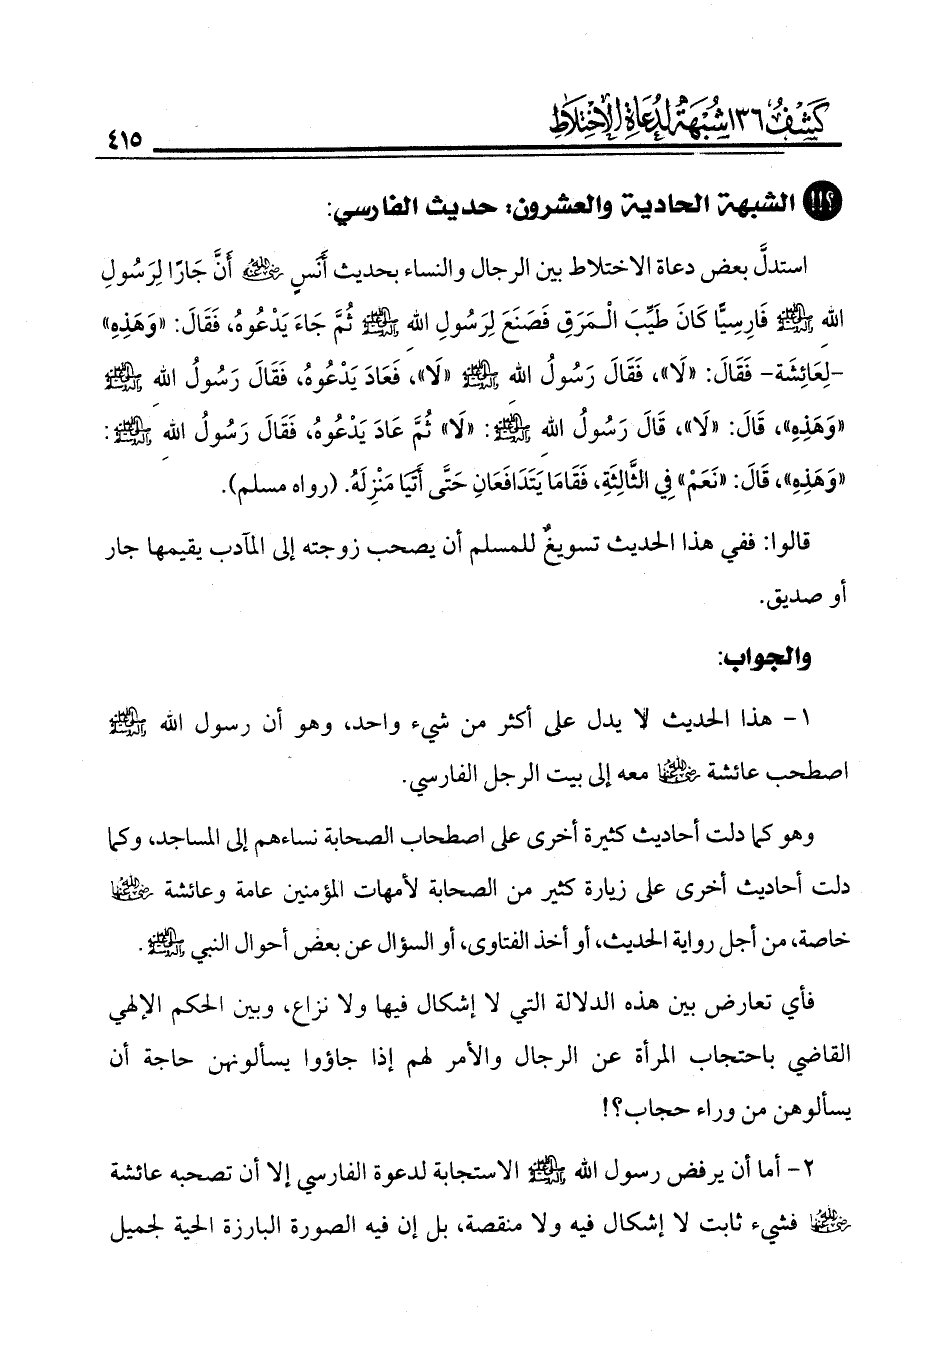 كَشْفُ ١٣٦ شُبْهَةً لِدُعَاةِ الِاخْتِلَاطِ
٤١٥
؟!! الشبهة الحادية والعشرون: حديث الفارسي:
استدلَّ بعض دعاة الاختلاط بين الرجال والنساء بحديث أَنَسٍ رضي الله عنه أَنَّ جَارًا لِرَسُولِ
اللهِ ﷺ فَارِسِيًّا كَانَ طَيِّبَ الْمَرَقِ فَصَنَعَ لِرَسُولِ اللهِ ﷺ ثُمَّ جَاءَ يَدْعُوهُ، فَقَالَ: «وَهَذِهِ»
-لِعَائِشَة- فَقَالَ: «لَا»، فَقَالَ رَسُولُ اللهِ ﷺ «لَا»، فَعَادَ يَدْعُوهُ، فَقَالَ رَسُولُ اللهِ ﷺ
«وَهَذِهِ»، قَالَ: «لَا»، قَالَ رَسُولُ اللهِ ﷺ: «لَا» ثُمَّ عَادَ يَدْعُوهُ، فَقَالَ رَسُولُ اللهِ ﷺ:
«وَهَذِهِ»، قَالَ: «نَعَمْ» فِي الثَّالِثَةِ، فَقَامَا يَتَدَافَعَانِ حَتَّى أَتَيَا مَنْزِلَهُ. (رواه مسلم).
قالوا: ففي هذا الحديث تسويغٌ للمسلم أن يصحب زوجته إلى المآدب يقيمها جار
أو صديق.
والجواب:
١- هذا الحديث لا يدل على أكثر من شيء واحد، وهو أن رسول الله ﷺ
اصطحب عائشة رضي الله عنها معه إلى بيت الرجل الفارسي.
وهو كما دلت أحاديث كثيرة أخرى على اصطحاب الصحابة نساءهم إلى المساجد، وكما
دلت أحاديث أخرى على زيارة كثير من الصحابة لأمهات المؤمنين عامة وعائشة رضي الله عنها
خاصة، من أجل رواية الحديث، أو أخذ الفتاوى، أو السؤال عن بعض أحوال النبي ﷺ.
فأي تعارض بين هذه الدلالة التي لا إشكال فيها ولا نزاع، وبين الحكم الإلهي
القاضي باحتجاب المرأة عن الرجال والأمر لهم إذا جاؤوا يسألونهن حاجة أن
يسألوهن من وراء حجاب؟!
٢- أما أن يرفض رسول الله ﷺ الاستجابة لدعوة الفارسي إلا أن تصحبه عائشة
رضي الله عنها فشيء ثابت لا إشكال فيه ولا منقصة، بل إن فيه الصورة البارزة الحية لجميل